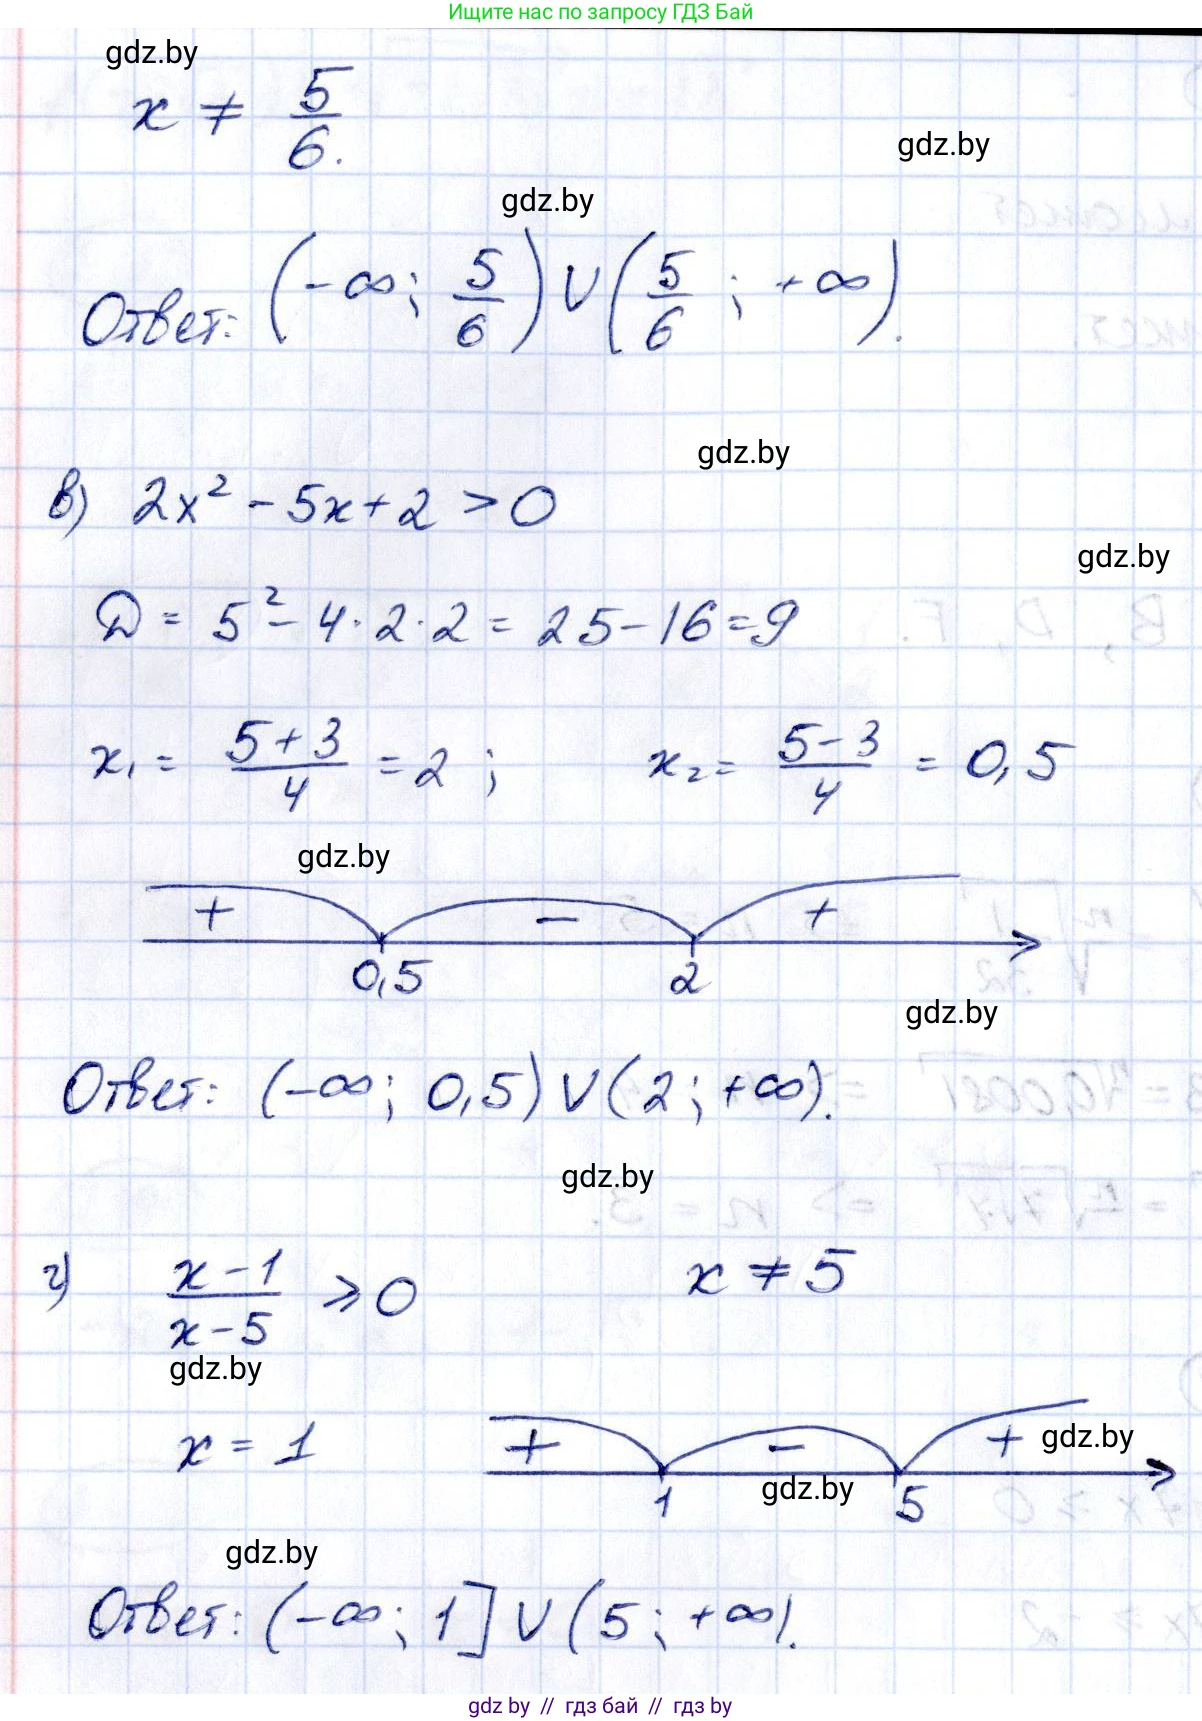 Ищите нас по запросу ГДЗ Бай
gdz.by
x ≠ 5/6.
gdz.by
gdz.by
Ответ: (-∞; 5/6) ∪ (5/6; +∞).
gdz.by
в) 2x² - 5x + 2 > 0
gdz.by
D = 5² - 4·2·2 = 25 - 16 = 9
x₁ = (5+3)/4 = 2; x₂ = (5-3)/4 = 0,5
gdz.by
+ - +
0,5 2
gdz.by
Ответ: (-∞; 0,5) ∪ (2; +∞).
gdz.by
г) (x-1)/(x-5) ⩾ 0 x ≠ 5
gdz.by
x = 1 + - + gdz.by
1 gdz.by 5
gdz.by
Ответ: (-∞; 1] ∪ (5; +∞).
gdz by // гдз бай // гдз by